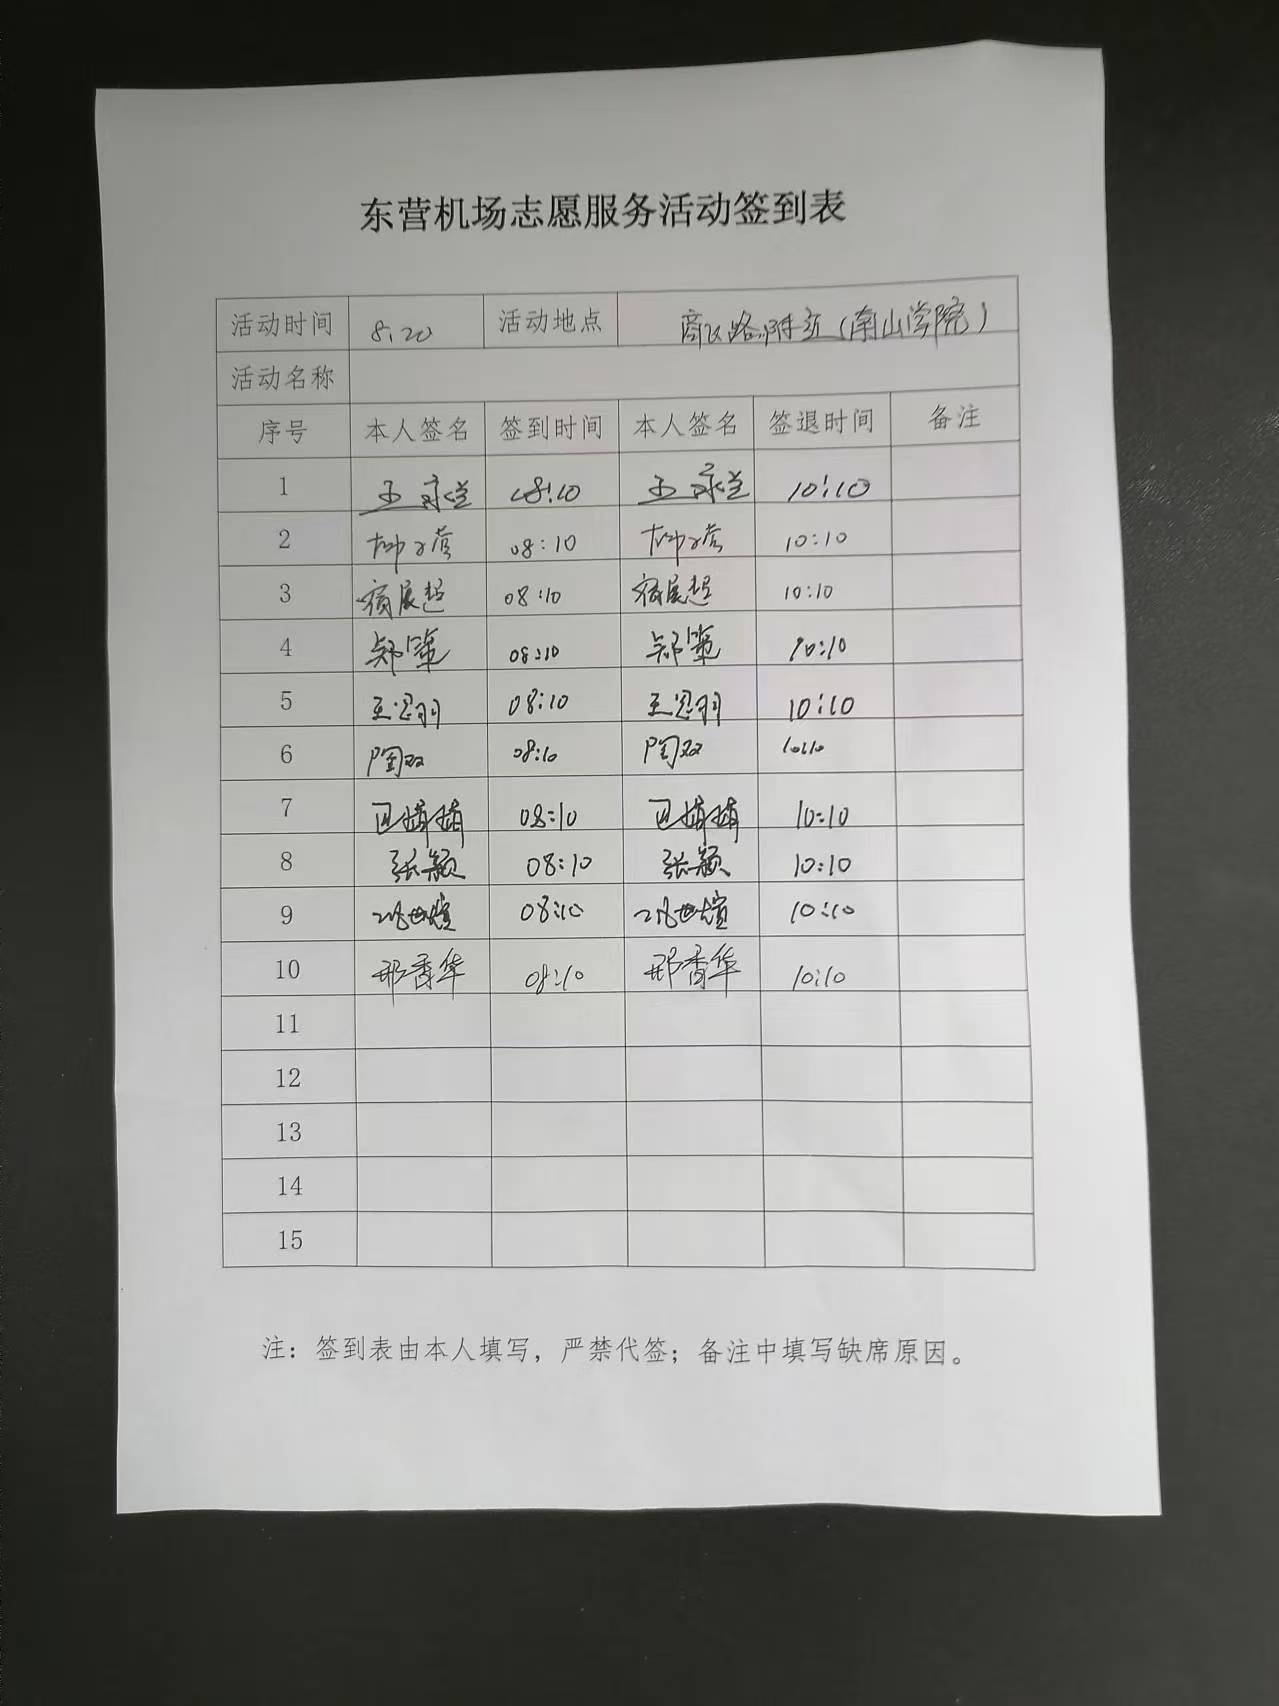 东营机场志愿服务活动签到表
活动时间 8.20 活动地点 路附近(南山学院)
活动名称
序号 本人签名 签到时间 本人签名 签退时间 备注
1 王永 08:10 王永 10:10
2 柳 08:10 柳 10:10
3 展超 08:10 展超 10:10
4 郑策 08:10 郑策 10:10
5 王思羽 08:10 王思羽 10:10
6 陶双 08:10 陶双 10:10
7 婧婧 08:10 婧婧 10:10
8 张颖 08:10 张颖 10:10
9 世煊 08:10 世煊 10:10
10 邢香华 08:10 邢香华 10:10
11
12
13
14
15
注：签到表由本人填写，严禁代签；备注中填写缺席原因。